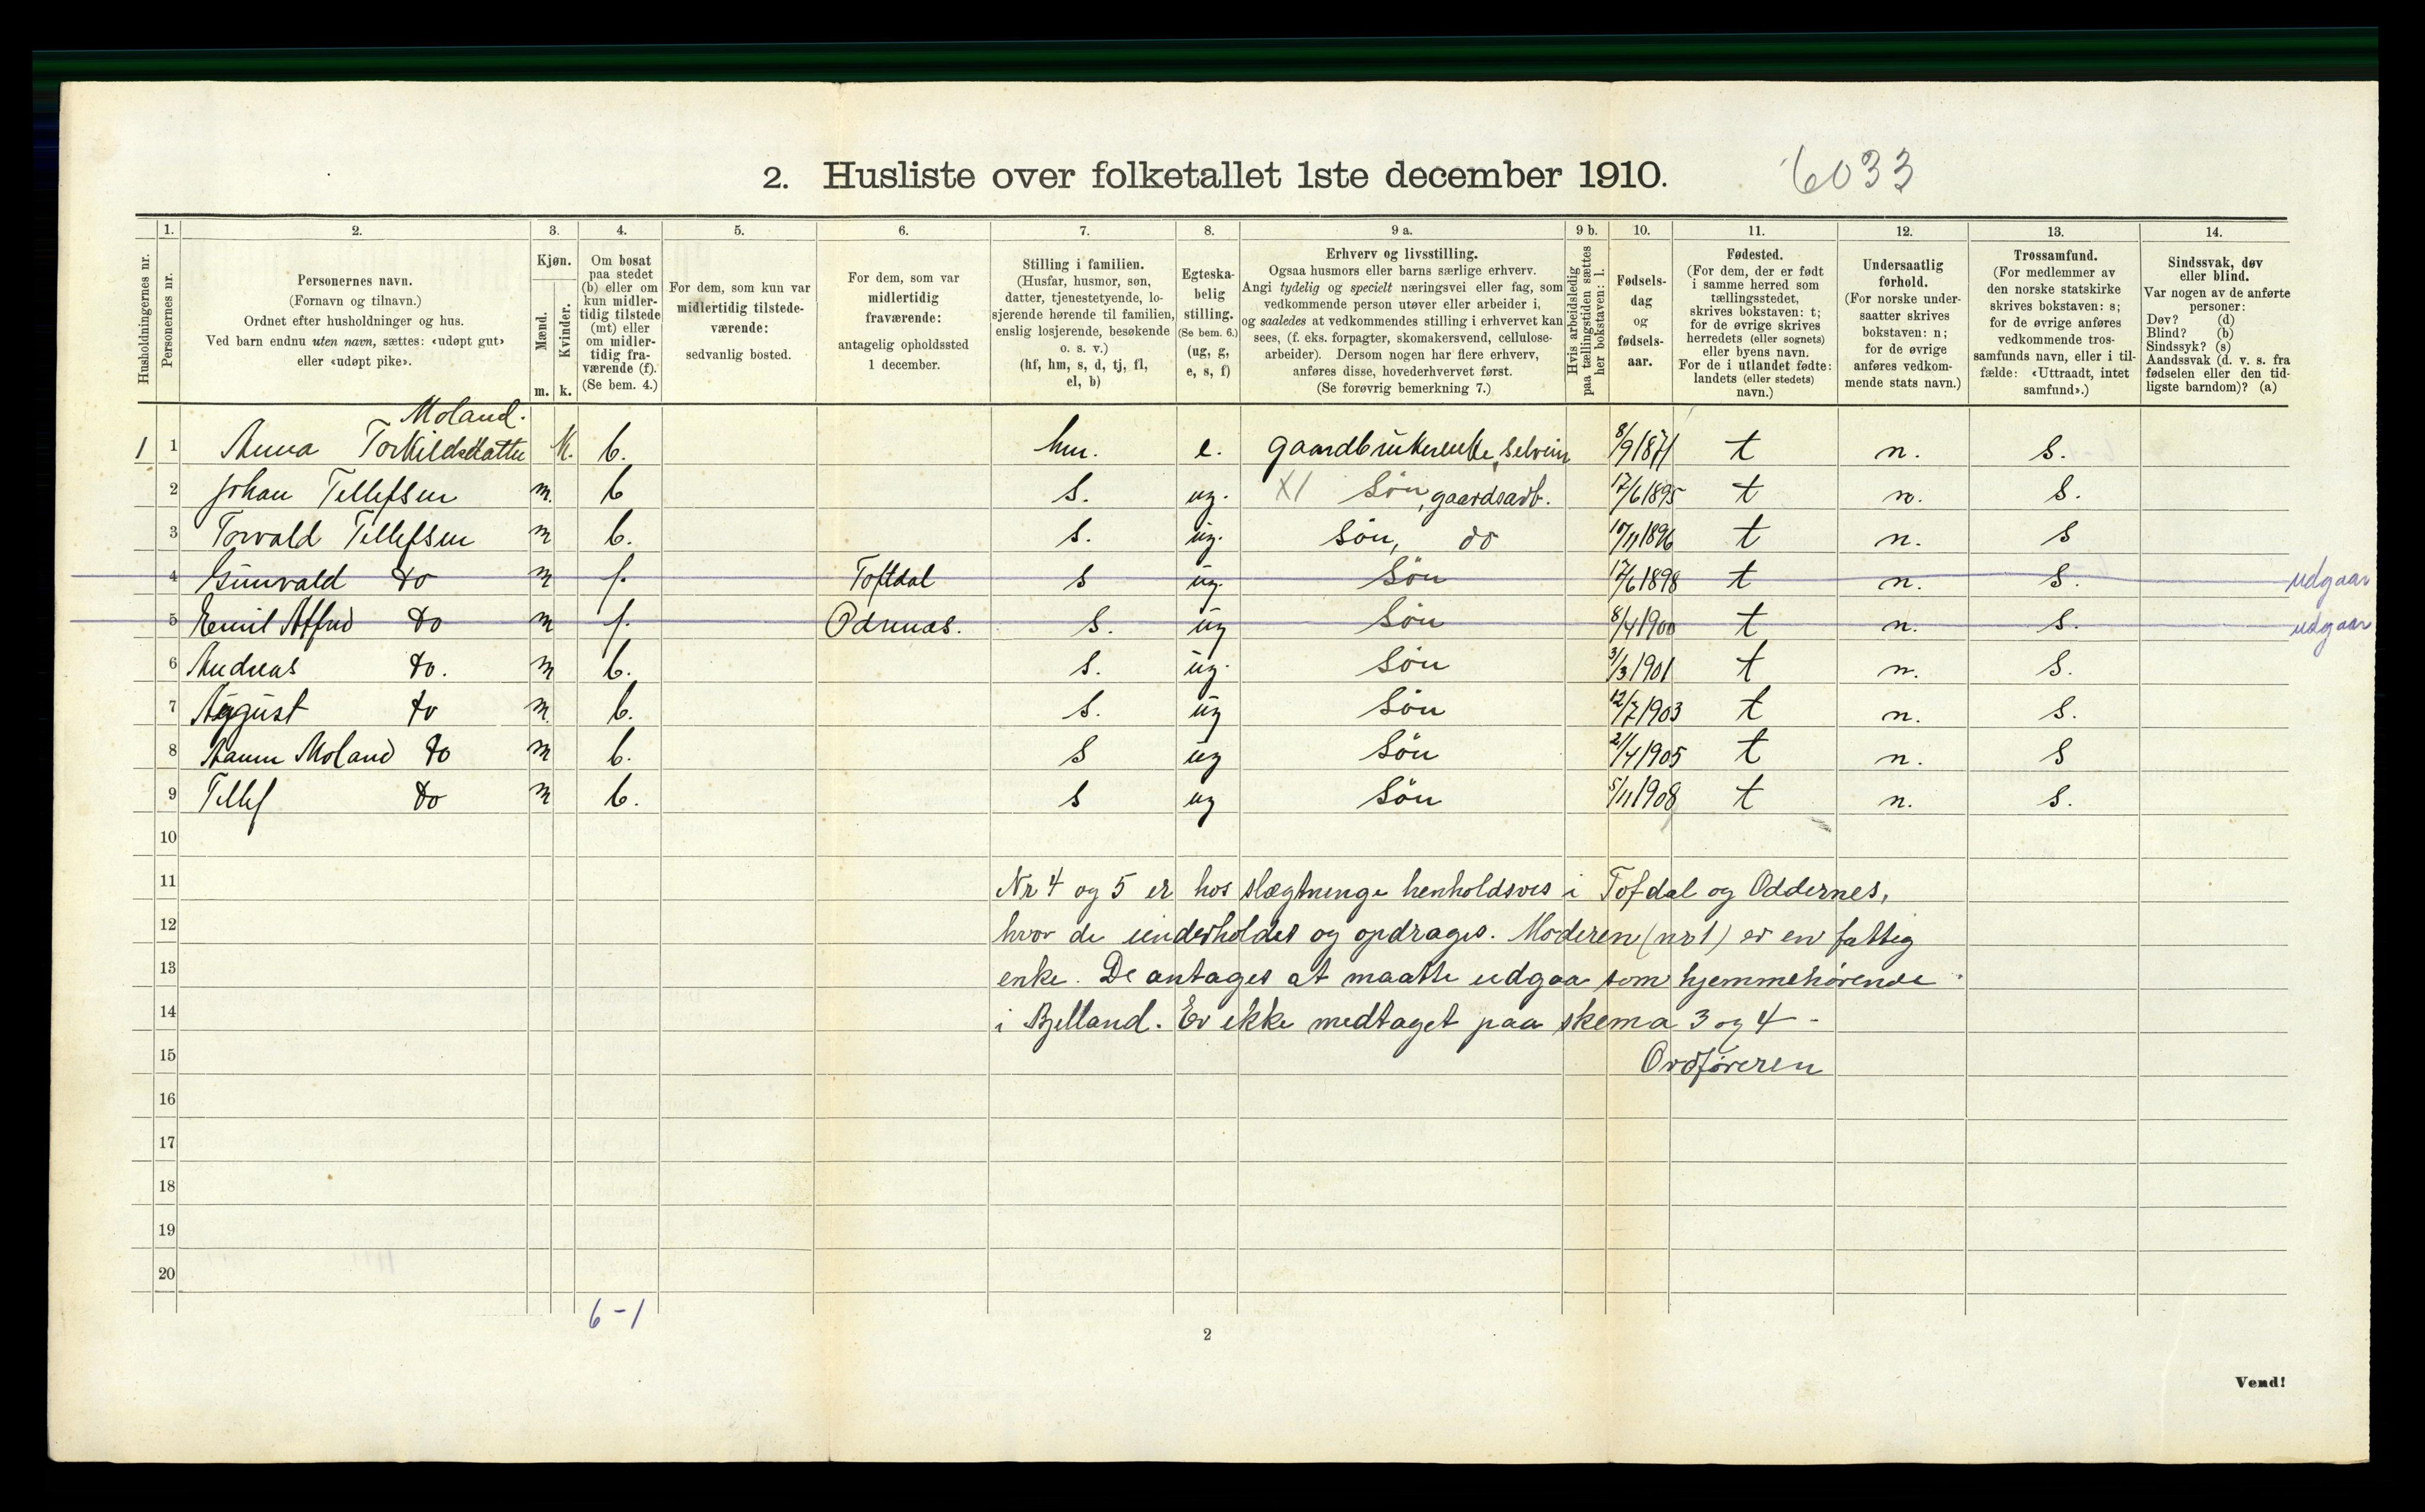 2. Husliste over folketallet 1ste december 1910. 6033
Husholdningernes nr.
1. Personernes nr.
2. Personernes navn. (Fornavn og tilnavn.) Ordnet efter husholdninger og hus. Ved barn endnu uten navn, sættes: «udøpt gut» eller «udøpt pike».
3. Kjøn. Mænd. m. Kvinder. k.
4. Om bosat paa stedet (b) eller om kun midlertidig tilstede (mt) eller om midlertidig fraværende (f). (Se bem. 4.)
5. For dem, som kun var midlertidig tilstedeværende: sedvanlig bosted.
6. For dem, som var midlertidig fraværende: antagelig opholdssted 1 december.
7. Stilling i familien. (Husfar, husmor, søn, datter, tjenestetyende, losjerende hørende til familien, enslig losjerende, besøkende o. s. v.) (hf, hm, s, d, tj, fl, el, b)
8. Egteskabelig stilling. (Se bem. 6.) (ug, g, e, s, f)
9 a. Erhverv og livsstilling. Ogsaa husmors eller barns særlige erhverv. Angi tydelig og specielt næringsvei eller fag, som vedkommende person utøver eller arbeider i, og saaledes at vedkommendes stilling i erhvervet kan sees, (f. eks. forpagter, skomakersvend, cellulosearbeider). Dersom nogen har flere erhverv, anføres disse, hovederhvervet først. (Se forøvrig bemerkning 7.)
9 b. Hvis arbeidsledig paa tællingstiden sættes her bokstaven: l.
10. Fødselsdag og fødselsaar.
11. Fødested. (For dem, der er født i samme herred som tællingsstedet, skrives bokstaven: t; for de øvrige skrives herredets (eller sognets) eller byens navn. For de i utlandet fødte: landets (eller stedets) navn.)
12. Undersaatlig forhold. (For norske undersaatter skrives bokstaven: n; for de øvrige anføres vedkommende stats navn.)
13. Trossamfund. (For medlemmer av den norske statskirke skrives bokstaven: s; for de øvrige anføres vedkommende trossamfunds navn, eller i tilfælde: «Uttraadt, intet samfund».)
14. Sindssvak, døv eller blind. Var nogen av de anførte personer: Døv? (d) Blind? (b) Sindssyk? (s) Aandssvak (d. v. s. fra fødselen eller den tidligste barndom)? (a)
Moland.
1 1 Anna Torkildsdatter K. b. hm. e. gaardbrukerenke, selveier 8/9 1871 t n. s.
2 Johan Tellefsen m. b s. ug. XI Søn, gaardsarb. 17/6 1895 t n. s.
3 Torvald Tellefsen m b. s. ug. Søn, do 10/11 1896 t n. s
4 Gunvald do m f. Toftdal s ug. Søn 17/6 1898 t n. s. udgaar
5 Emil Alfred do m f. Odrnæs. s. ug Søn 8/4 1900 t n. s. udgaar
6 Andreas do. m b. s. ug. Søn 3/3 1901 t n. s.
7 August do m. b. s. ug Søn 12/7 1903 t n. s.
8 Aanen Moland do m b. s ug Søn 2/4 1905 t n. s
9 Tellef do m b. s ug Søn 5/11 1908 t n. s.
10
11 Nr 4 og 5 er hos slægtninge henholdsvis i Tofdal og Oddernes,
12 hvor de underholdes og opdrages. Moderen (nr 1) er en fattig
13 enke. De antages at maatte udgaa som hjemmehørende
14 i Bjelland. Er ikke medtaget paa skema 3 og 4 -
15 Ordføreren
16
17
18
19
20
6-1
2
Vend!